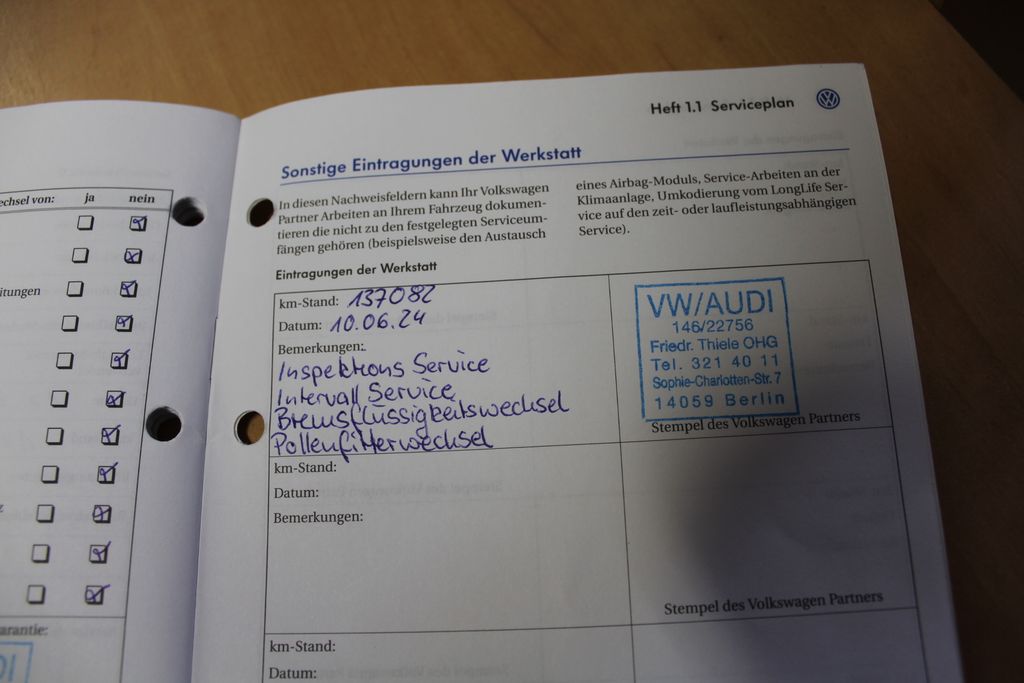 echsel von: ja nein
itungen
arantie:
DI
Heft 1.1 Serviceplan
Sonstige Eintragungen der Werkstatt
In diesen Nachweisfeldern kann Ihr Volkswagen
Partner Arbeiten an Ihrem Fahrzeug dokumen-
tieren die nicht zu den festgelegten Serviceum-
fängen gehören (beispielsweise den Austausch
eines Airbag-Moduls, Service-Arbeiten an der
Klimaanlage, Umkodierung vom LongLife Ser-
vice auf den zeit- oder laufleistungsabhängigen
Service).
Eintragungen der Werkstatt
km-Stand: 137082
Datum: 10.06.24
Bemerkungen:
Inspektions Service
Intervall Service
Bremsflüssigkeitswechsel
Pollenfilterwechsel
VW/AUDI
146/22756
Friedr. Thiele OHG
Tel. 321 40 11
Sophie-Charlotten-Str. 7
14059 Berlin
Stempel des Volkswagen Partners
km-Stand:
Datum:
Bemerkungen:
Stempel des Volkswagen Partners
km-Stand:
Datum: